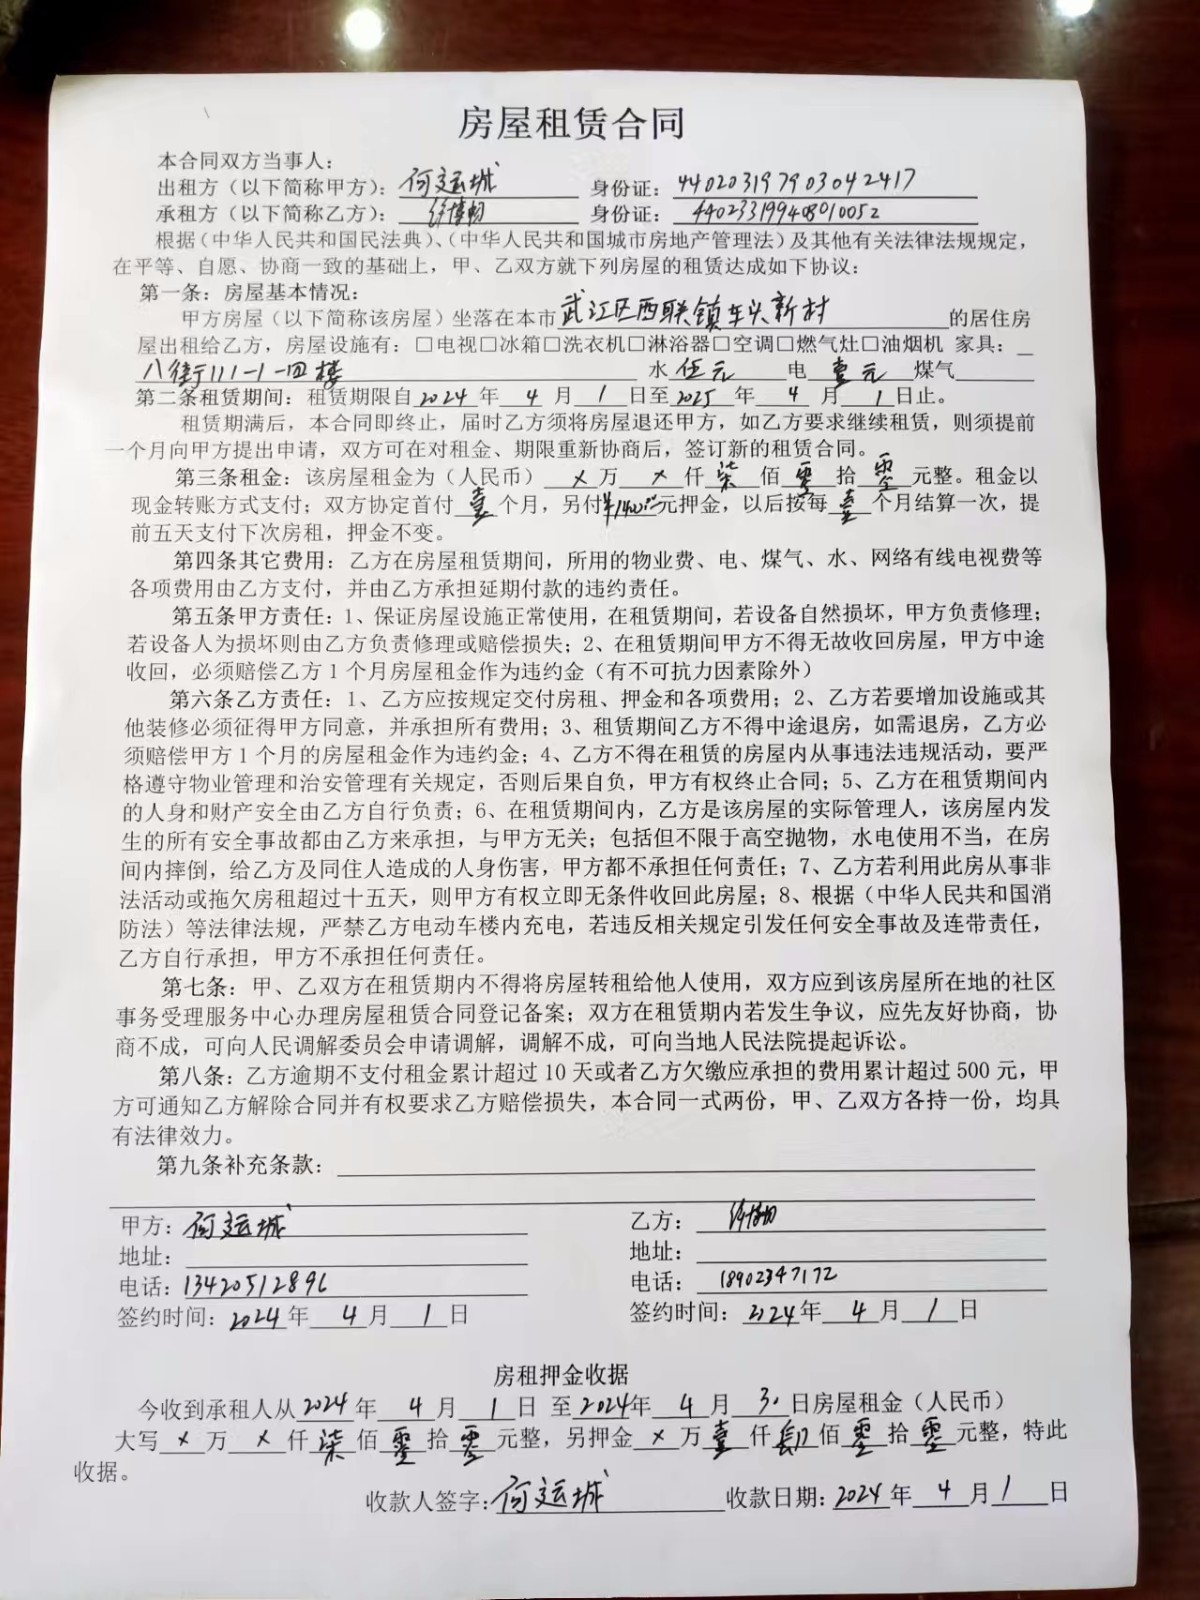 房屋租赁合同
本合同双方当事人：
出租方（以下简称甲方）：何运城 身份证：440203197903042417
承租方（以下简称乙方）： 身份证：440233199408010052
根据（中华人民共和国民法典）、（中华人民共和国城市房地产管理法）及其他有关法律法规规定，
在平等、自愿、协商一致的基础上，甲、乙双方就下列房屋的租赁达成如下协议：
第一条：房屋基本情况：
甲方房屋（以下简称该房屋）坐落在本市武江区西联镇车头新村的居住房
屋出租给乙方，房屋设施有：□电视□冰箱□洗衣机□淋浴器□空调□燃气灶□油烟机 家具：
八街111-1-四楼 水 伍元 电 壹元 煤气
第二条租赁期间：租赁期限自2024年 4 月 1 日至2025 年 4 月 1日止。
租赁期满后，本合同即终止，届时乙方须将房屋退还甲方，如乙方要求继续租赁，则须提前
一个月向甲方提出申请，双方可在对租金、期限重新协商后，签订新的租赁合同。
第三条租金：该房屋租金为（人民币） × 万 × 仟 柒 佰 零 拾 零 元整。租金以
现金转账方式支付；双方协定首付 壹 个月，另付¥1400.00元押金，以后按每 壹 个月结算一次，提
前五天支付下次房租，押金不变。
第四条其它费用：乙方在房屋租赁期间，所用的物业费、电、煤气、水、网络有线电视费等
各项费用由乙方支付，并由乙方承担延期付款的违约责任。
第五条甲方责任：1、保证房屋设施正常使用，在租赁期间，若设备自然损坏，甲方负责修理；
若设备人为损坏则由乙方负责修理或赔偿损失；2、在租赁期间甲方不得无故收回房屋，甲方中途
收回，必须赔偿乙方 1 个月房屋租金作为违约金（有不可抗力因素除外）
第六条乙方责任：1、乙方应按规定交付房租、押金和各项费用；2、乙方若要增加设施或其
他装修必须征得甲方同意，并承担所有费用；3、租赁期间乙方不得中途退房，如需退房，乙方必
须赔偿甲方 1 个月的房屋租金作为违约金；4、乙方不得在租赁的房屋内从事违法违规活动，要严
格遵守物业管理和治安管理有关规定，否则后果自负，甲方有权终止合同；5、乙方在租赁期间内
的人身和财产安全由乙方自行负责；6、在租赁期间内，乙方是该房屋的实际管理人，该房屋内发
生的所有安全事故都由乙方来承担，与甲方无关；包括但不限于高空抛物，水电使用不当，在房
间内摔倒，给乙方及同住人造成的人身伤害，甲方都不承担任何责任；7、乙方若利用此房从事非
法活动或拖欠房租超过十五天，则甲方有权立即无条件收回此房屋；8、根据（中华人民共和国消
防法）等法律法规，严禁乙方电动车楼内充电，若违反相关规定引发任何安全事故及连带责任，
乙方自行承担，甲方不承担任何责任。
第七条：甲、乙双方在租赁期内不得将房屋转租给他人使用，双方应到该房屋所在地的社区
事务受理服务中心办理房屋租赁合同登记备案；双方在租赁期内若发生争议，应先友好协商，协
商不成，可向人民调解委员会申请调解，调解不成，可向当地人民法院提起诉讼。
第八条：乙方逾期不支付租金累计超过 10 天或者乙方欠缴应承担的费用累计超过 500 元，甲
方可通知乙方解除合同并有权要求乙方赔偿损失，本合同一式两份，甲、乙双方各持一份，均具
有法律效力。
第九条补充条款：
甲方：何运城 乙方：
地址： 地址：
电话：13420512896 电话：18902347172
签约时间：2024年 4 月 1 日 签约时间：2024年 4 月 1 日
房租押金收据
今收到承租人从2024年 4 月 1 日 至2024年 4 月 30日房屋租金（人民币）
大写 × 万 × 仟 柒 佰 零 拾 零 元整，另押金 × 万 壹 仟 肆 佰 零 拾 零 元整，特此
收据。
收款人签字：何运城 收款日期：2024年 4 月 1 日